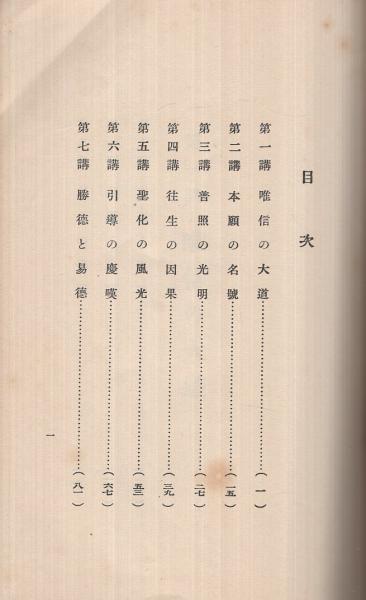 目次
第一講 唯信の大道……………………(一)
第二講 本願の名號……………………(一五)
第三講 普照の光明……………………(二七)
第四講 往生の因果……………………(三九)
第五講 聖化の風光……………………(五三)
第六講 引導の慶嘆……………………(六七)
第七講 勝德と易德……………………(八一)
一